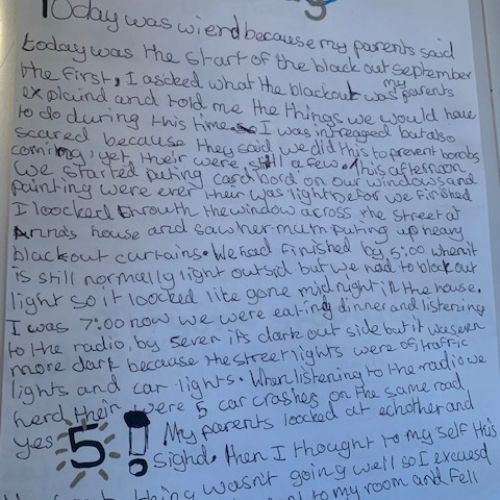 Today was wierd because my parents said
today was the start of the black out September
the first, I ascked what the blackout was my parents
explaind and told me the things we would have
to do during this time so I was intreaged but also
scared because they said we did this to prevent bombs
coming, yet their were still a few. This afternoon
we started puting cardbord on our windows and
painting were ever their was light befor we finished
I loocked throuth the window across the street at
Anna's house and saw her mum puting up heavy
blackout curtains. We had finished by 5:00 when it
is still normally light outsid but we had to black out
light so it loocked like gone mid night in the house.
I was 7:00 now we were eating dinner and listening
to the radio, by seven its dark out side but it was even
more dark because the street lights were of, traffic
lights and car lights. When listening to the radio we
herd their were 5 car crashes on the same road
yes 5! My parents loocked at echother and
sighd. then I thought to my self this
thing wasn't going well so I excused
to my room and fell